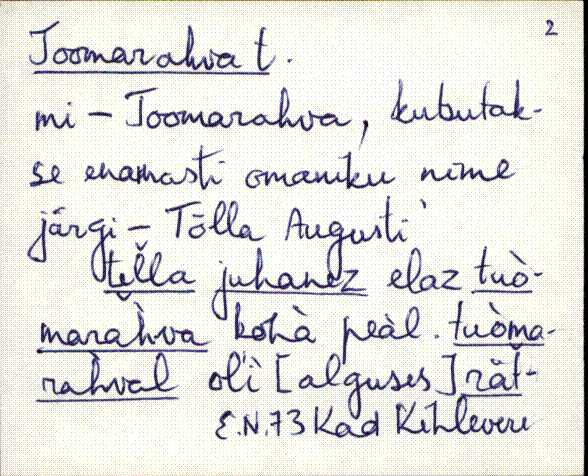 2
Toomarahva t.
mi – Toomarahva, kutsutak-
se enamasti omaniku nime
järgi – Tõlla Augusti
te̮l̆la juhanez elaz tuò-
marah̀va kohà peàl. tuòma-
rah̀val ol'ì [alguses] rät-
E.N.73 Kad Kihlevere